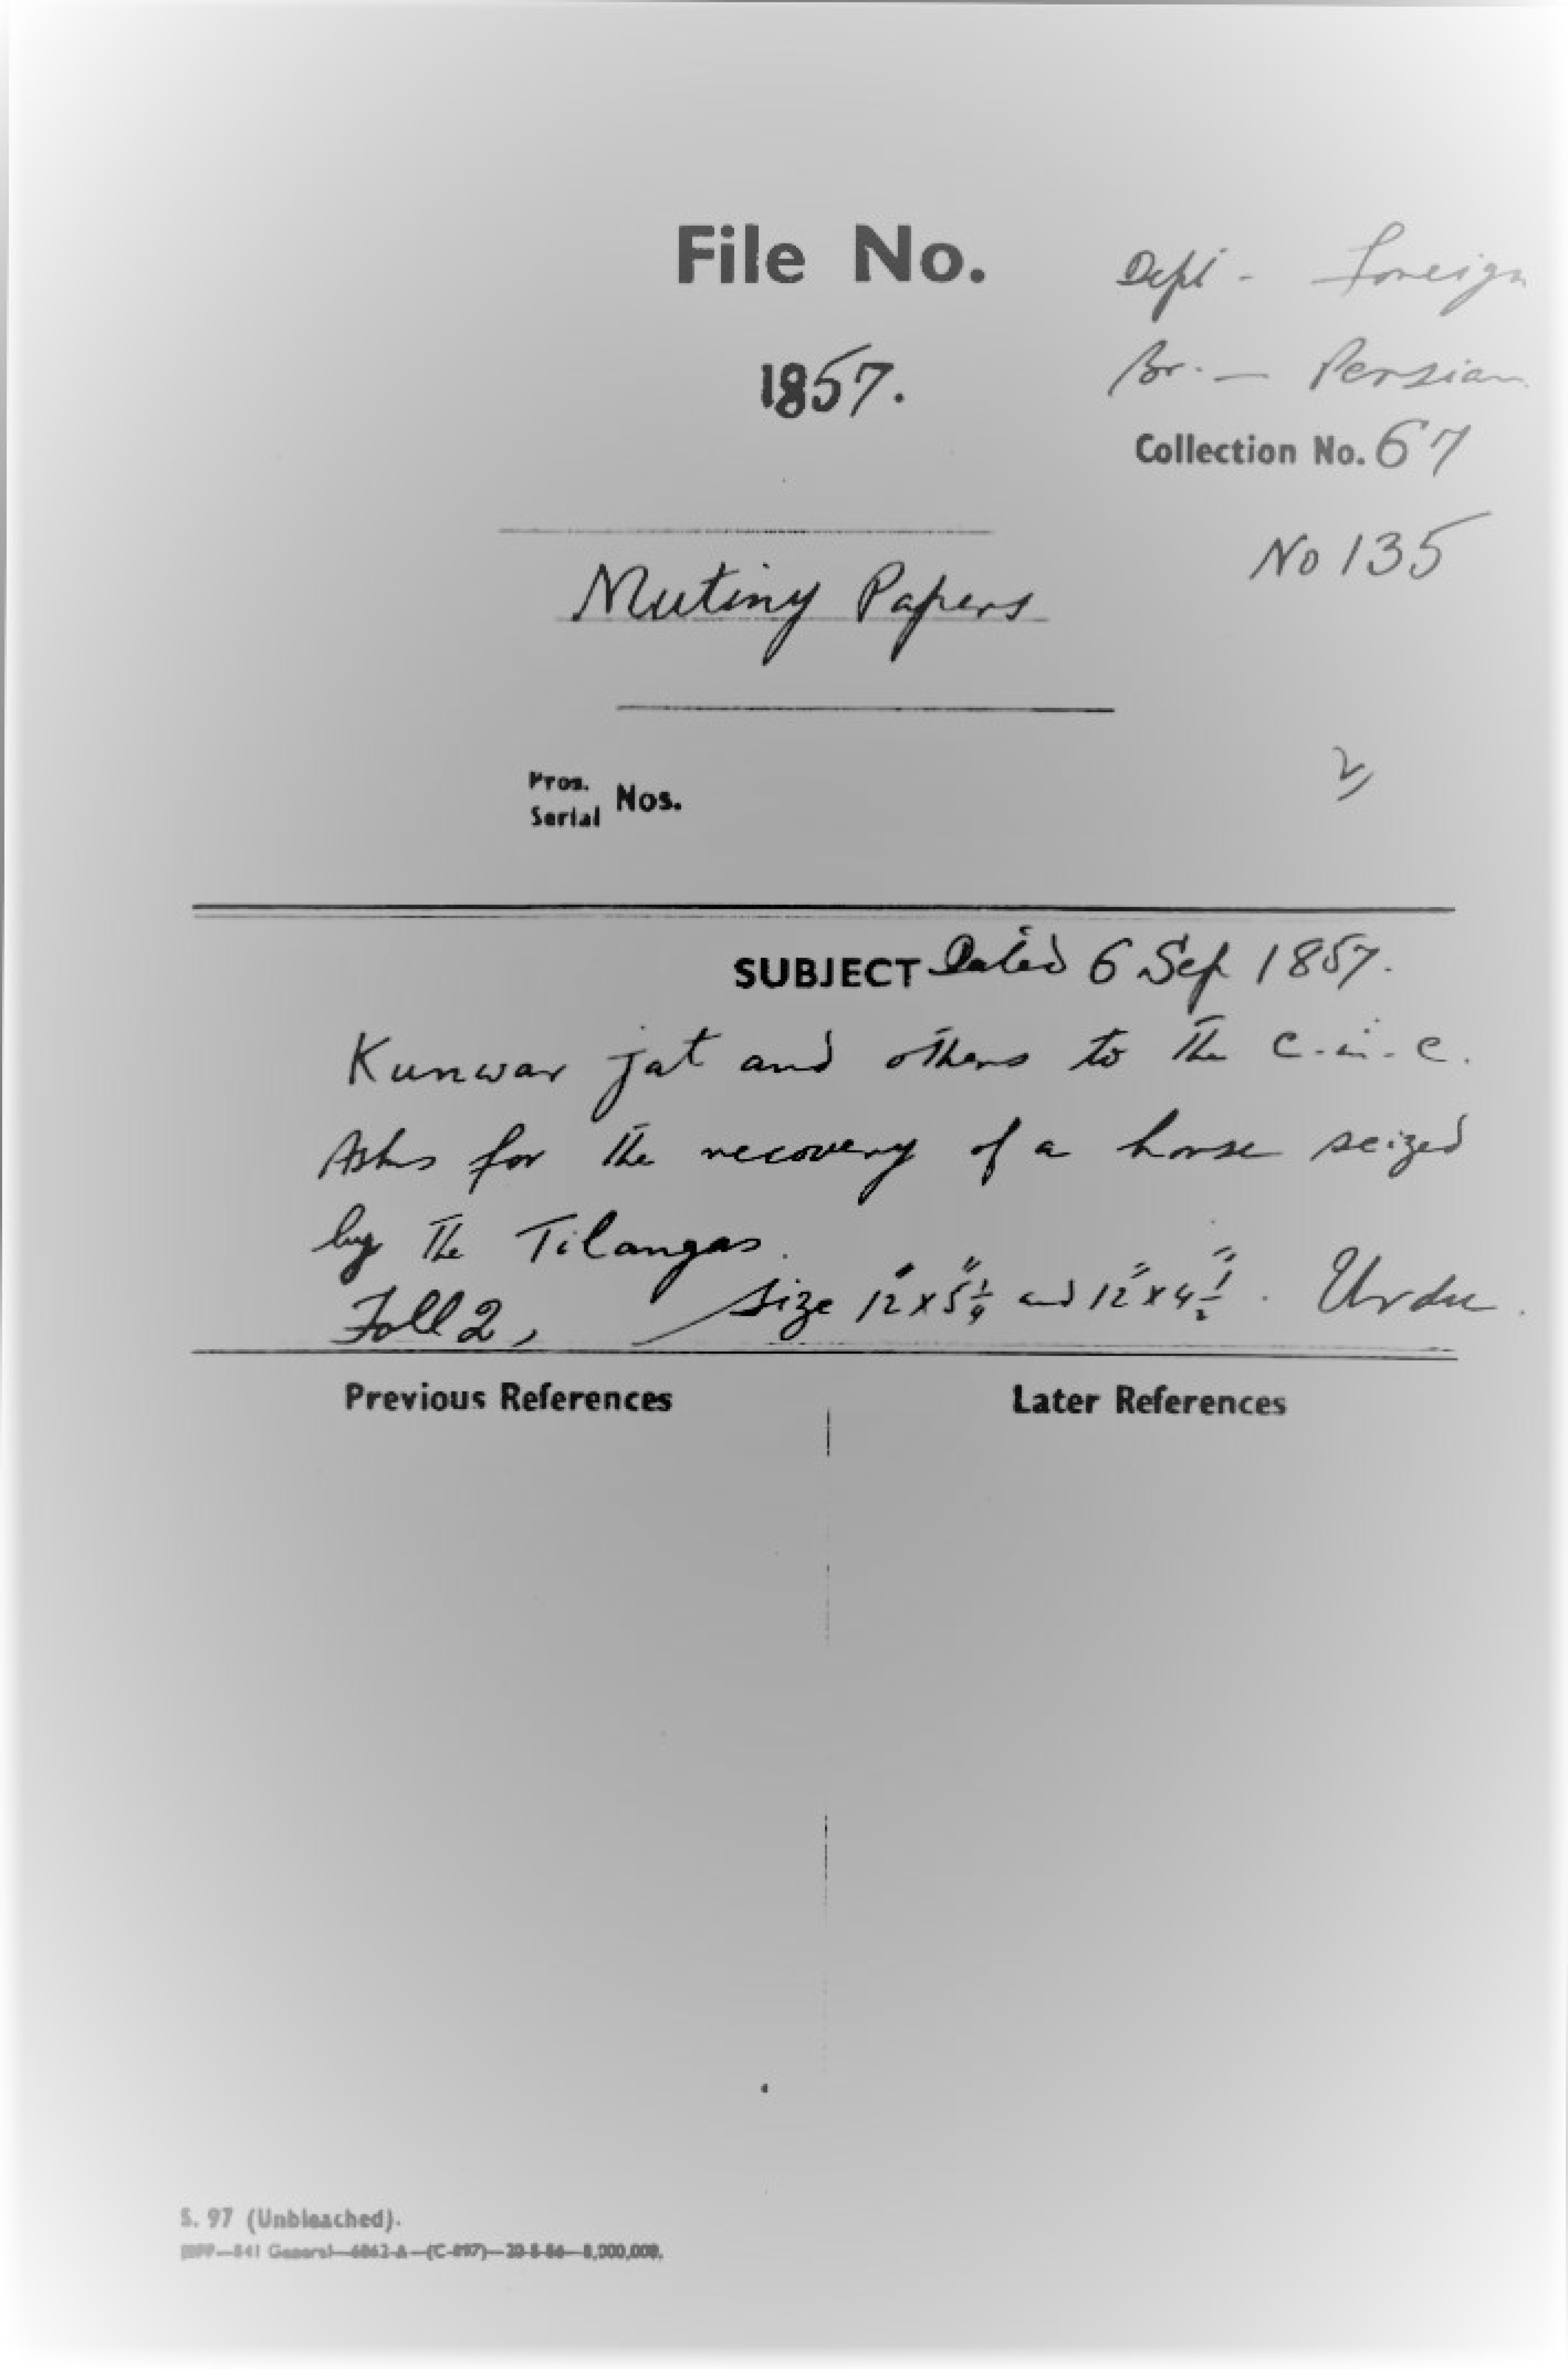 File No.
Dept - Foreign
1857.
Br. — Persian
Collection No. 67
No 135
Mutiny Papers
Pros.
Serial Nos.
SUBJECT Dated 6 Sep 1857.
Kunwar jat and others to the C-in-C.
Asks for the recovery of a horse seized
by the Tilangas.
Foll 2, Size 12" x 5 1/4" and 12" x 4 1/2". Urdu.
Previous References
Later References
S. 97 (Unbleached).
General